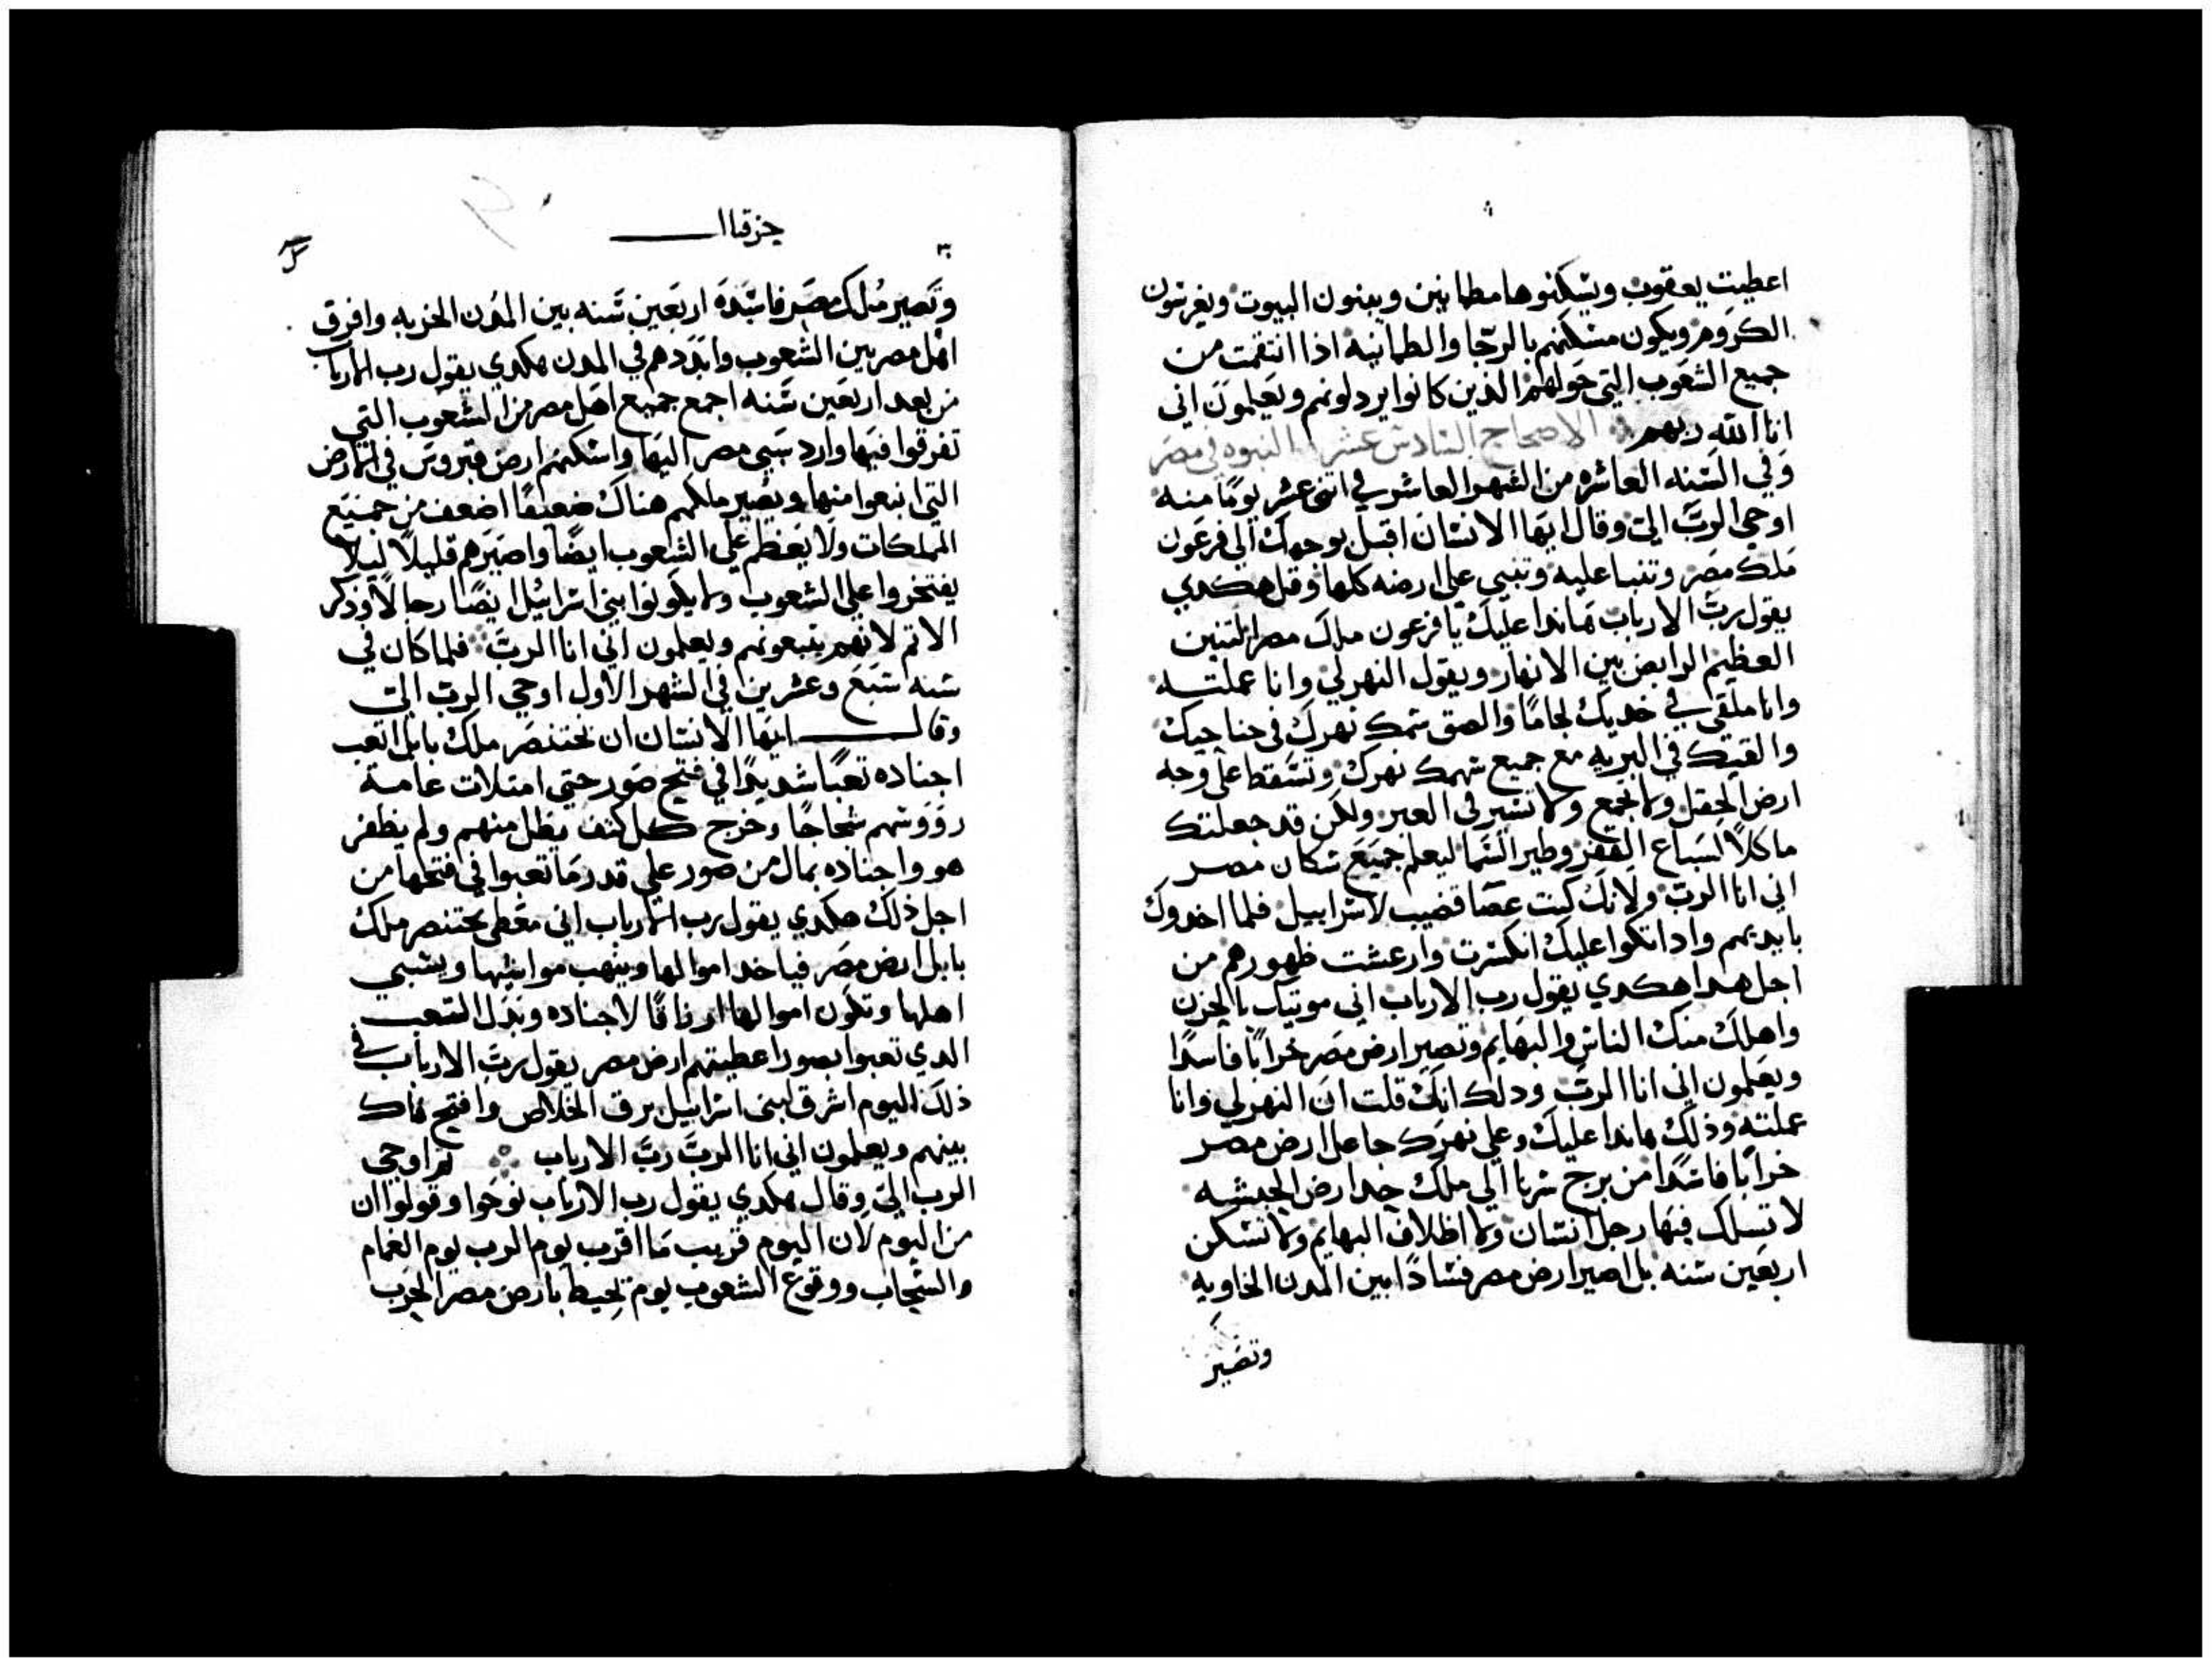 اعطيت يعقوب ويسكنوها مطمانين ويبنون البيوت ويغرسون
الكروم ويكون مسكنهم بالرجا والطمانينه اذا انتقمت من
جميع الشعوب التي حولهم الذين كانوا يردلونهم ويعلمون اني
انا الله ربهم الاصحاح السادس عشر النبوه في مصر
وفي السنه العاشره من الشهر العاشر في اثنى عشر يوما منه
اوحي الرب الي وقال ايها الانسان اقبل بوجهك الي فرعون
ملك مصر وتنبا عليه وتنبي علي ارضه كلها وقل هكدي
يقول رب الارباب هاندا عليك يا فرعون ملك مصر التنين
العظيم الرابض بين الانهار ويقول النهر لي وانا عملته
وانا ملقي في خديك لجاما والصق سمك نهرك في جناحيك
والقيك في البريه مع جميع سمك نهرك وتسقط علي وجه
ارض الحقل ولا تجمع ولا تسير في العبر ولكن قد جعلتك
ماكلا لسباع القفر وطير السما ليعلم جميع سكان مصر
اني انا الرب ولانك كنت عصا قضيب لاسراييل فلما اخدوك
بايديهم وادا اتكوا عليك انكسرت وارعشت ظهورهم من
اجل هدا هكدي يقول رب الارباب اني موتيك بالحزن
واهلك منك الناس والبهايم وتصير ارض مصر خرابا فاسدا
ويعلمون اني انا الرب ودلك انك قلت ان النهر لي وانا
عملته وذلك هاندا عليك وعلي نهرك جاعل ارض مصر
خرابا فاسدا من برج سربا الي ملك حد ارض الحبشه
لا تسلك فيها رجل انسان ولا اظلاف البهايم ولا تسكن
اربعين سنه بل اصير ارض مصر فسادا بين المدن الخاويه
وتصير
حزقيال
وتصير ملك مصر فاسده اربعين سنه بين المدن الخربه وافرق
اهل مصر بين الشعوب وابددهم في المدن هكدي يقول رب الارباب
من بعد اربعين سنه اجمع جميع اهل مصر من الشعوب التي
تفرقوا فيها وارد سبي مصر اليها واسكنهم ارض فتروس في الارض
التي انبعوا منها ويصير ملكهم هناك ضعيفا اضعف من جميع
المملكات ولا يعظم علي الشعوب ايضا واصيرهم قليلا ليلا
يفتخروا علي الشعوب ولا يكونوا بني اسراييل ايضا رجالا وذكر
الاثم لانهم يتبعونهم ويعلمون اني انا الرب فلما كان في
سنه سبع وعشرين في الشهر الاول اوحي الرب الي
وقال ايها الانسان ان بختنصر ملك بابل اتعب
اجناده تعبا شديدا في فتح صور حتي امتلات عامة
رووسهم شجاجا وخرج كل كتف يظل منهم ولم يظفر
هو واجناده بمال من صور علي قدر ما تعبوا في فتحها من
اجل ذلك هكدي يقول رب الارباب اني معطي بختنصر ملك
بابل ارض مصر فياخد اموالها وينهب مواشيها ويسبي
اهلها وتكون اموالها ارزاقا لاجناده وبدل التعب
الدي تعبوا بصور اعطيتهم ارض مصر يقول رب الارباب في
ذلك اليوم اشرق لبني اسراييل برق الخلاص وافتح فاك
بينهم ويعلمون اني انا الرب رب الارباب ثم اوحي
الرب الي وقال هكدي يقول رب الارباب نوحوا وقولوا ان
من اليوم لان اليوم قريب ما اقرب يوم الرب يوم الغمام
والسحاب ووقوع الشعوب يوم تحيط بارض مصر الحرب